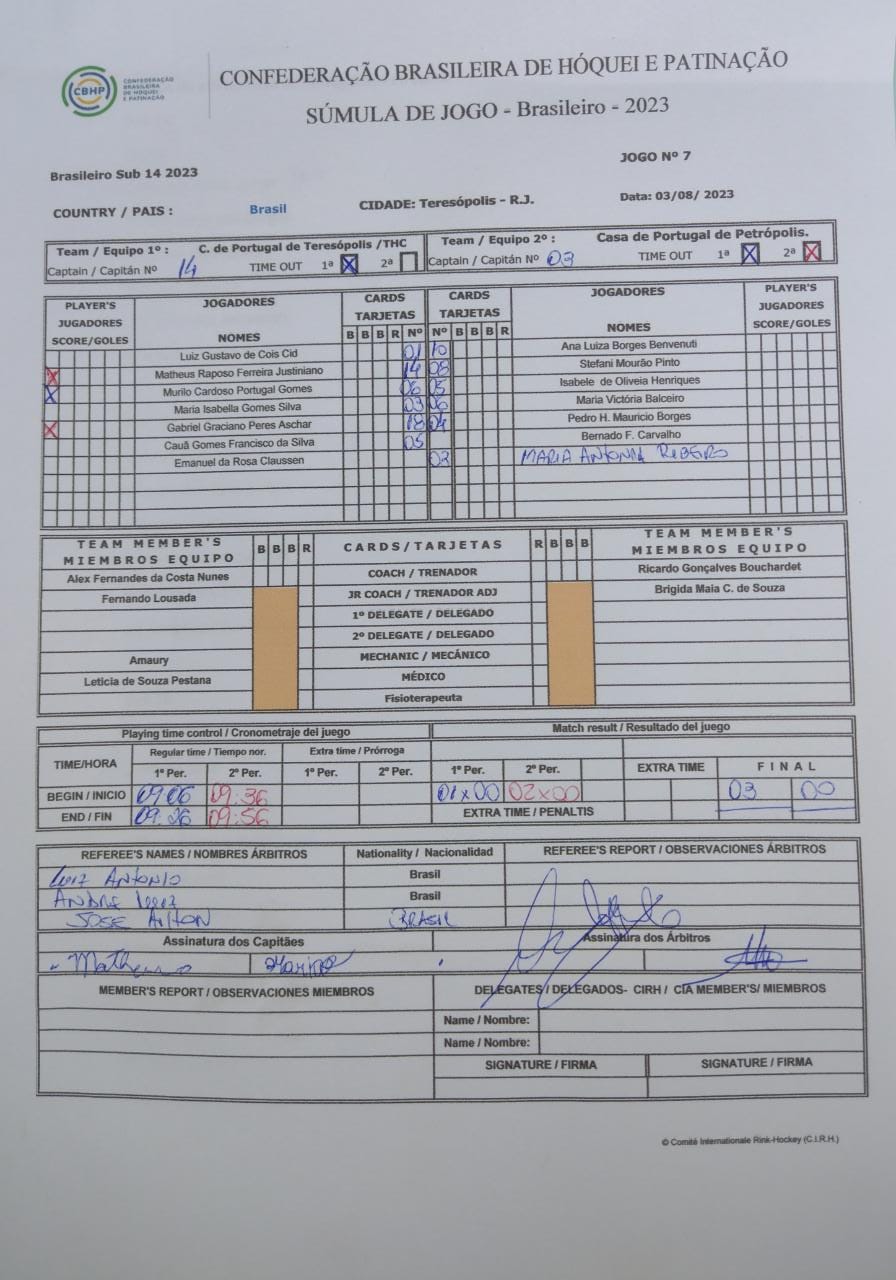 CBHP CONFEDERAÇÃO BRASILEIRA DE HÓQUEI E PATINAÇÃO
CONFEDERAÇÃO BRASILEIRA DE HÓQUEI E PATINAÇÃO
SÚMULA DE JOGO - Brasileiro - 2023
JOGO Nº 7
Brasileiro Sub 14 2023
COUNTRY / PAIS : Brasil CIDADE: Teresópolis - R.J. Data: 03/08/ 2023
Team / Equipo 1º : C. de Portugal de Teresópolis /THC Team / Equipo 2º : Casa de Portugal de Petrópolis.
Captain / Capitán Nº 14 TIME OUT 1ª X 2ª Captain / Capitán Nº 03 TIME OUT 1ª X 2ª X
PLAYER'S JOGADORES CARDS CARDS JOGADORES PLAYER'S
JUGADORES TARJETAS TARJETAS JUGADORES
SCORE/GOLES NOMES B B B R Nº Nº B B B R NOMES SCORE/GOLES
Luiz Gustavo de Cois Cid 01 10 Ana Luiza Borges Benvenuti
X Matheus Raposo Ferreira Justiniano 14 08 Stefani Mourão Pinto
X Murilo Cardoso Portugal Gomes 06 05 Isabele de Oliveia Henriques
Maria Isabella Gomes Silva 03 06 Maria Victória Balceiro
X Gabriel Graciano Peres Aschar 18 04 Pedro H. Mauricio Borges
Cauã Gomes Francisco da Silva 05 Bernado F. Carvalho
Emanuel da Rosa Claussen 03 MARIA ANTONIA RIBEIRO
TEAM MEMBER'S B B B R CARDS/TARJETAS R B B B TEAM MEMBER'S
MIEMBROS EQUIPO MIEMBROS EQUIPO
Alex Fernandes da Costa Nunes COACH / TRENADOR Ricardo Gonçalves Bouchardet
Fernando Lousada JR COACH / TRENADOR ADJ Brigida Maia C. de Souza
1º DELEGATE / DELEGADO
2º DELEGATE / DELEGADO
Amaury MECHANIC / MECÁNICO
Leticia de Souza Pestana MÉDICO
Fisioterapeuta
Playing time control / Cronometraje del juego Match result / Resultado del juego
TIME/HORA Regular time / Tiempo nor. Extra time / Prórroga
1º Per. 2º Per. 1º Per. 2º Per. 1º Per. 2º Per. EXTRA TIME FINAL
BEGIN / INICIO 09:06 09:36 01x00 02x00 03 00
END / FIN 09:26 09:56 EXTRA TIME / PENALTIS
REFEREE'S NAMES / NOMBRES ÁRBITROS Nationality / Nacionalidad REFEREE'S REPORT / OBSERVACIONES ÁRBITROS
LUIZ ANTONIO Brasil
ANDRE Brasil
JOSE AILTON BRASIL
Assinatura dos Capitães Assinatura dos Árbitros
Matheus
MEMBER'S REPORT / OBSERVACIONES MIEMBROS DELEGATES / DELEGADOS- CIRH / CIA MEMBER'S/ MIEMBROS
Name / Nombre:
Name / Nombre:
SIGNATURE / FIRMA SIGNATURE / FIRMA
© Comité Internationale Rink-Hockey (C.I.R.H.)